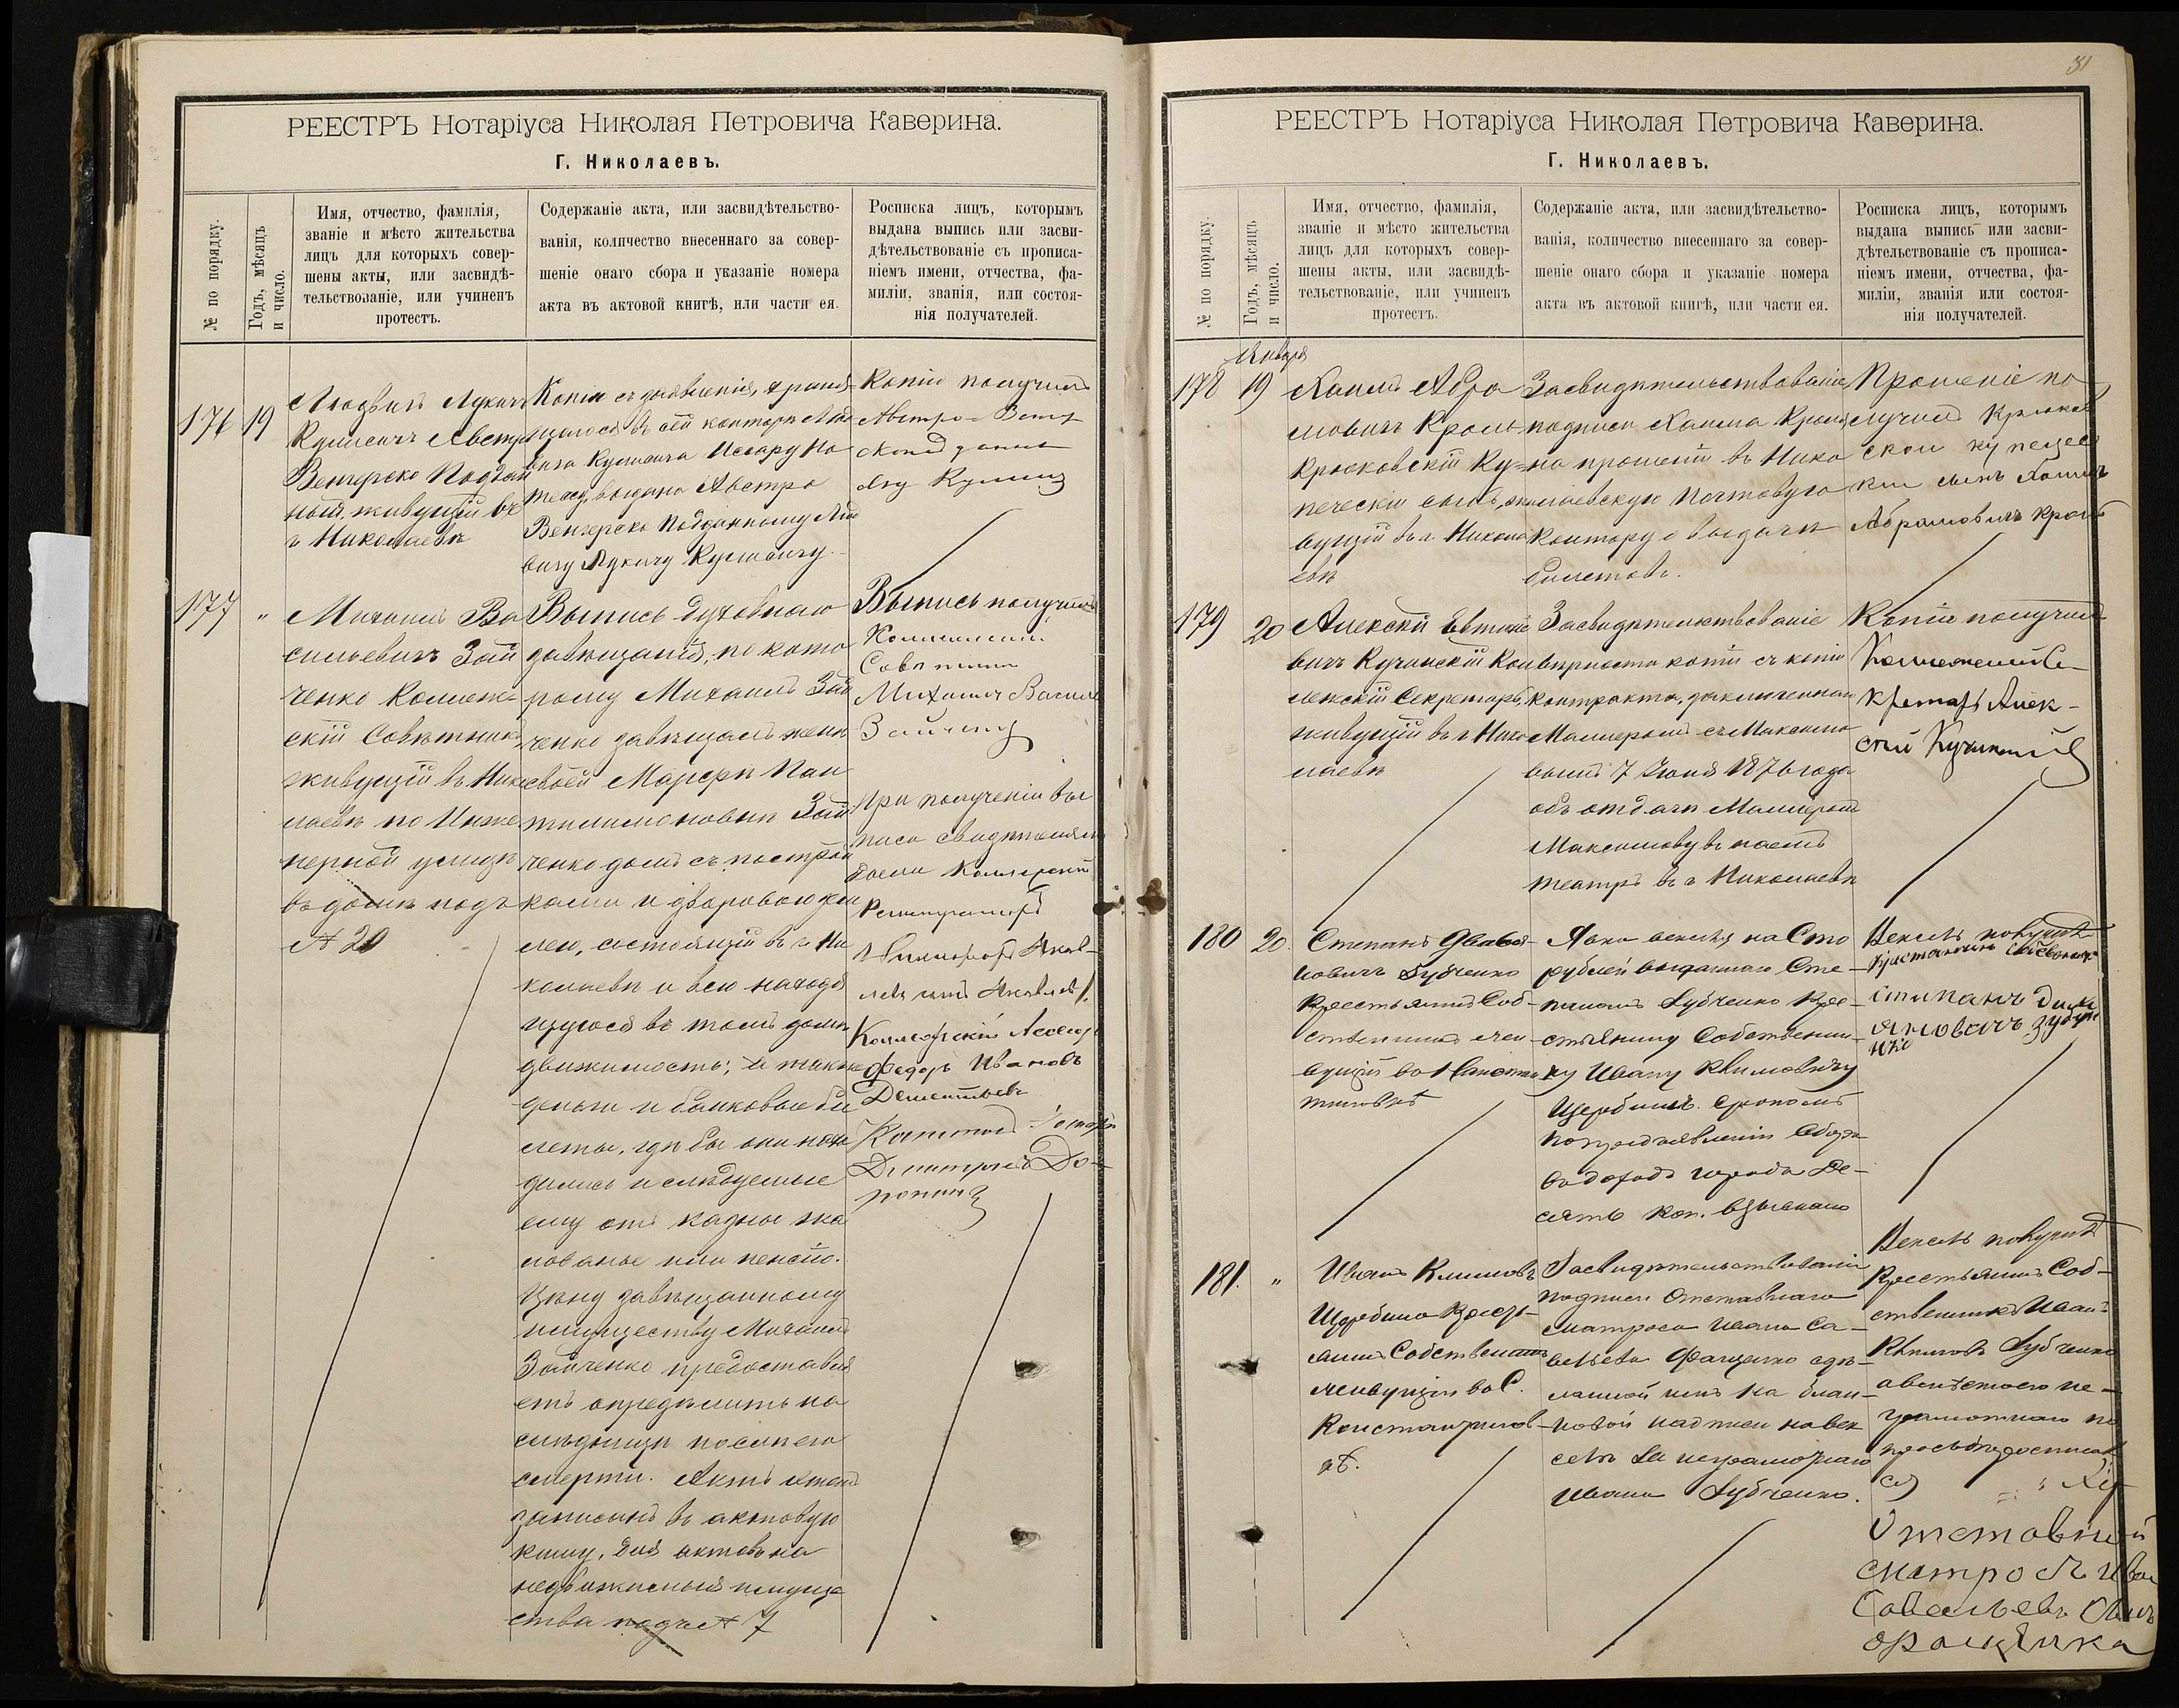 31
РЕЕСТРЪ Нотаріуса Николая Петровича Каверина.
Г. Николаевъ.
№ по порядку.
Годъ, мѣсяцъ
и число.
Имя, отчество, фамилія,
званіе и мѣсто жительства
лицъ для которыхъ совер-
шены акты, или засвидѣ-
тельствованіе, или учиненъ
протестъ.
Содержаніе акта, или засвидѣтельство-
ванія, количество внесеннаго за совер-
шеніе онаго сбора и указаніе номера
акта въ актовой книгѣ, или части ея.
Росписка лицъ, которымъ
выдана выпись или засви-
дѣтельствованіе съ прописа-
ніемъ имени, отчества, фа-
миліи, званія, или состоя-
нія получателей.
176
19
Людвигъ Лукичъ
Венгерско Поддан
ный живущій въ
г Николаевѣ
Копія съ
выдана Австро
Венгерско Подданному Люд
вигу Лукичу
Копію получилъ
Австро-Венгер
177
"
Михаилъ Ва
сильевичъ Зай
ченко Коллеж-
скій Совѣтникъ
живущій въ Нико
лаевѣ по Инже
нерной улицѣ
въ домѣ подъ
№ 20
Выпись духовнаго
завѣщанія, по кото
рому Михаилъ Зай
ченко завѣщалъ женѣ
своей Марфѣ Пан
телимоновнѣ Зай
ченко домъ съ построй
ками и дворовою зем
лею, состоящій въ г Ни
колаевѣ и всю находя
щуюся въ томъ домѣ
движимость; а также
деньги и банковые би
леты, гдѣ бы они нахо
дились и слѣдуемые
ему отъ казны жа
лованье или пенсію.
Цѣну завѣщанному
имуществу Михаилъ
Зайченко предоставля
етъ опредѣлить на
слѣдницѣ послѣ его
смерти. Актъ этотъ
записанъ въ актовую
книгу, для актовъ на
недвижимыя имуще
ства подъ № 7
Выпись получилъ
Коллежскій
Совѣтникъ
Михаилъ Василь
Зайченко
При полученіи вы
писи свидѣтелями
были Коллежскій
Регистраторъ
Яков-
левъ
Коллежскій Ассесоръ
Федоръ Ивановъ
Дементьевъ
Капитанъ
Дмитрій До-
ронинъ
РЕЕСТРЪ Нотаріуса Николая Петровича Каверина.
Г. Николаевъ.
№ по порядку.
Годъ, мѣсяцъ
и число.
Имя, отчество, фамилія,
званіе и мѣсто жительства
лицъ для которыхъ совер-
шены акты, или засвидѣ-
тельствованіе, или учиненъ
протестъ.
Содержаніе акта, или засвидѣтельство-
ванія, количество внесеннаго за совер-
шеніе онаго сбора и указаніе номера
акта въ актовой книгѣ, или части ея.
Росписка лицъ, которымъ
выдана выпись или засви-
дѣтельствованіе съ прописа-
ніемъ имени, отчества, фа-
миліи, званія или состоя-
нія получателей.
Января
178
19
Хаимъ Абра
мовичъ Кролъ
Крюковскій Ку-
печескій сынъ, жи
вущій въ г Никола
евѣ
Засвидѣтельствованіе
подписи Хаима Крола
на прошеніи въ Нико
лаевскую Почтовую
Контору о выдачѣ
билетовъ.
Прошеніе по
лучилъ Крюков
скои купечес
кии сынъ Хаимъ
Абрамовичъ Кролъ
179
20
Алексѣй Евтихіе
вичъ Кучинскій Кол
лежскій Секретарь,
живущій въ г Нико
лаевѣ
Засвидѣтельствованіе
вѣрности копіи съ копіи
контракта, заключеннаго
7 Іюня 1876 года
объ отдачѣ
Максимову въ наемъ
театръ въ г Николаевѣ
Копію получилъ
Коллежскій Се-
кретарь Алек-
сѣй Кучинскій
180
20.
Степанъ
новичъ Зубченко
Крестьянинъ Соб-
ственникъ жи
вущій во Констан
тиновкѣ
Явка векселя на Сто
рублей выданнаго Сте-
паномъ Зубченко Кре-
стьянину Собственни-
ку Ивану Климовичу
Щербинѣ. Срокомъ
по предъявленіи Сбора
въ доходъ города Де-
сять коп. взыскано
Вексель получилъ
Крестьянинъ Собственикъ
Степанъ
яновичъ Зубче
нко
181.
"
Иванъ Климовъ
Щербина Кресть-
янинъ Собственникъ
живущій во С.
Константинов-
кѣ.
Засвидѣтельствованіе
подписи Отставнаго
матроса Ивана Са-
вельева Фащенко сдѣ-
ланной имъ на блан-
ковой надписи на век
селѣ за неграмотнаго
Ивана Зубченко.
Вексель получилъ
Крестьянинъ Соб-
ственникъ Иванъ
Климовъ Зубченко
а вмѣсто его не-
грамотнаго по
просьбѣ росписал
ся
Отставной
матросъ Иван
Савельевъ